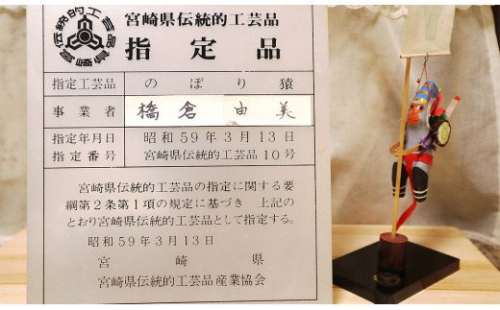 宮崎県伝統的工芸品
指定品
指定工芸品 のぼり猿
事業者 橋倉由美
指定年月日 昭和59年3月13日
指定番号 宮崎県伝統的工芸品10号
宮崎県伝統的工芸品の指定に関する要
綱第2条第1項の規定に基づき 上記の
とおり宮崎県伝統的工芸品として指定する。
昭和59年3月13日
宮崎県
宮崎県伝統的工芸品産業協会